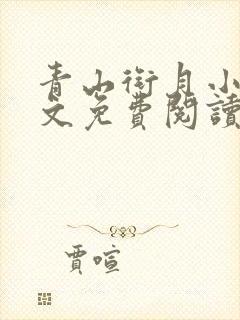 青山銜月小
文免費閱讀
賈喧